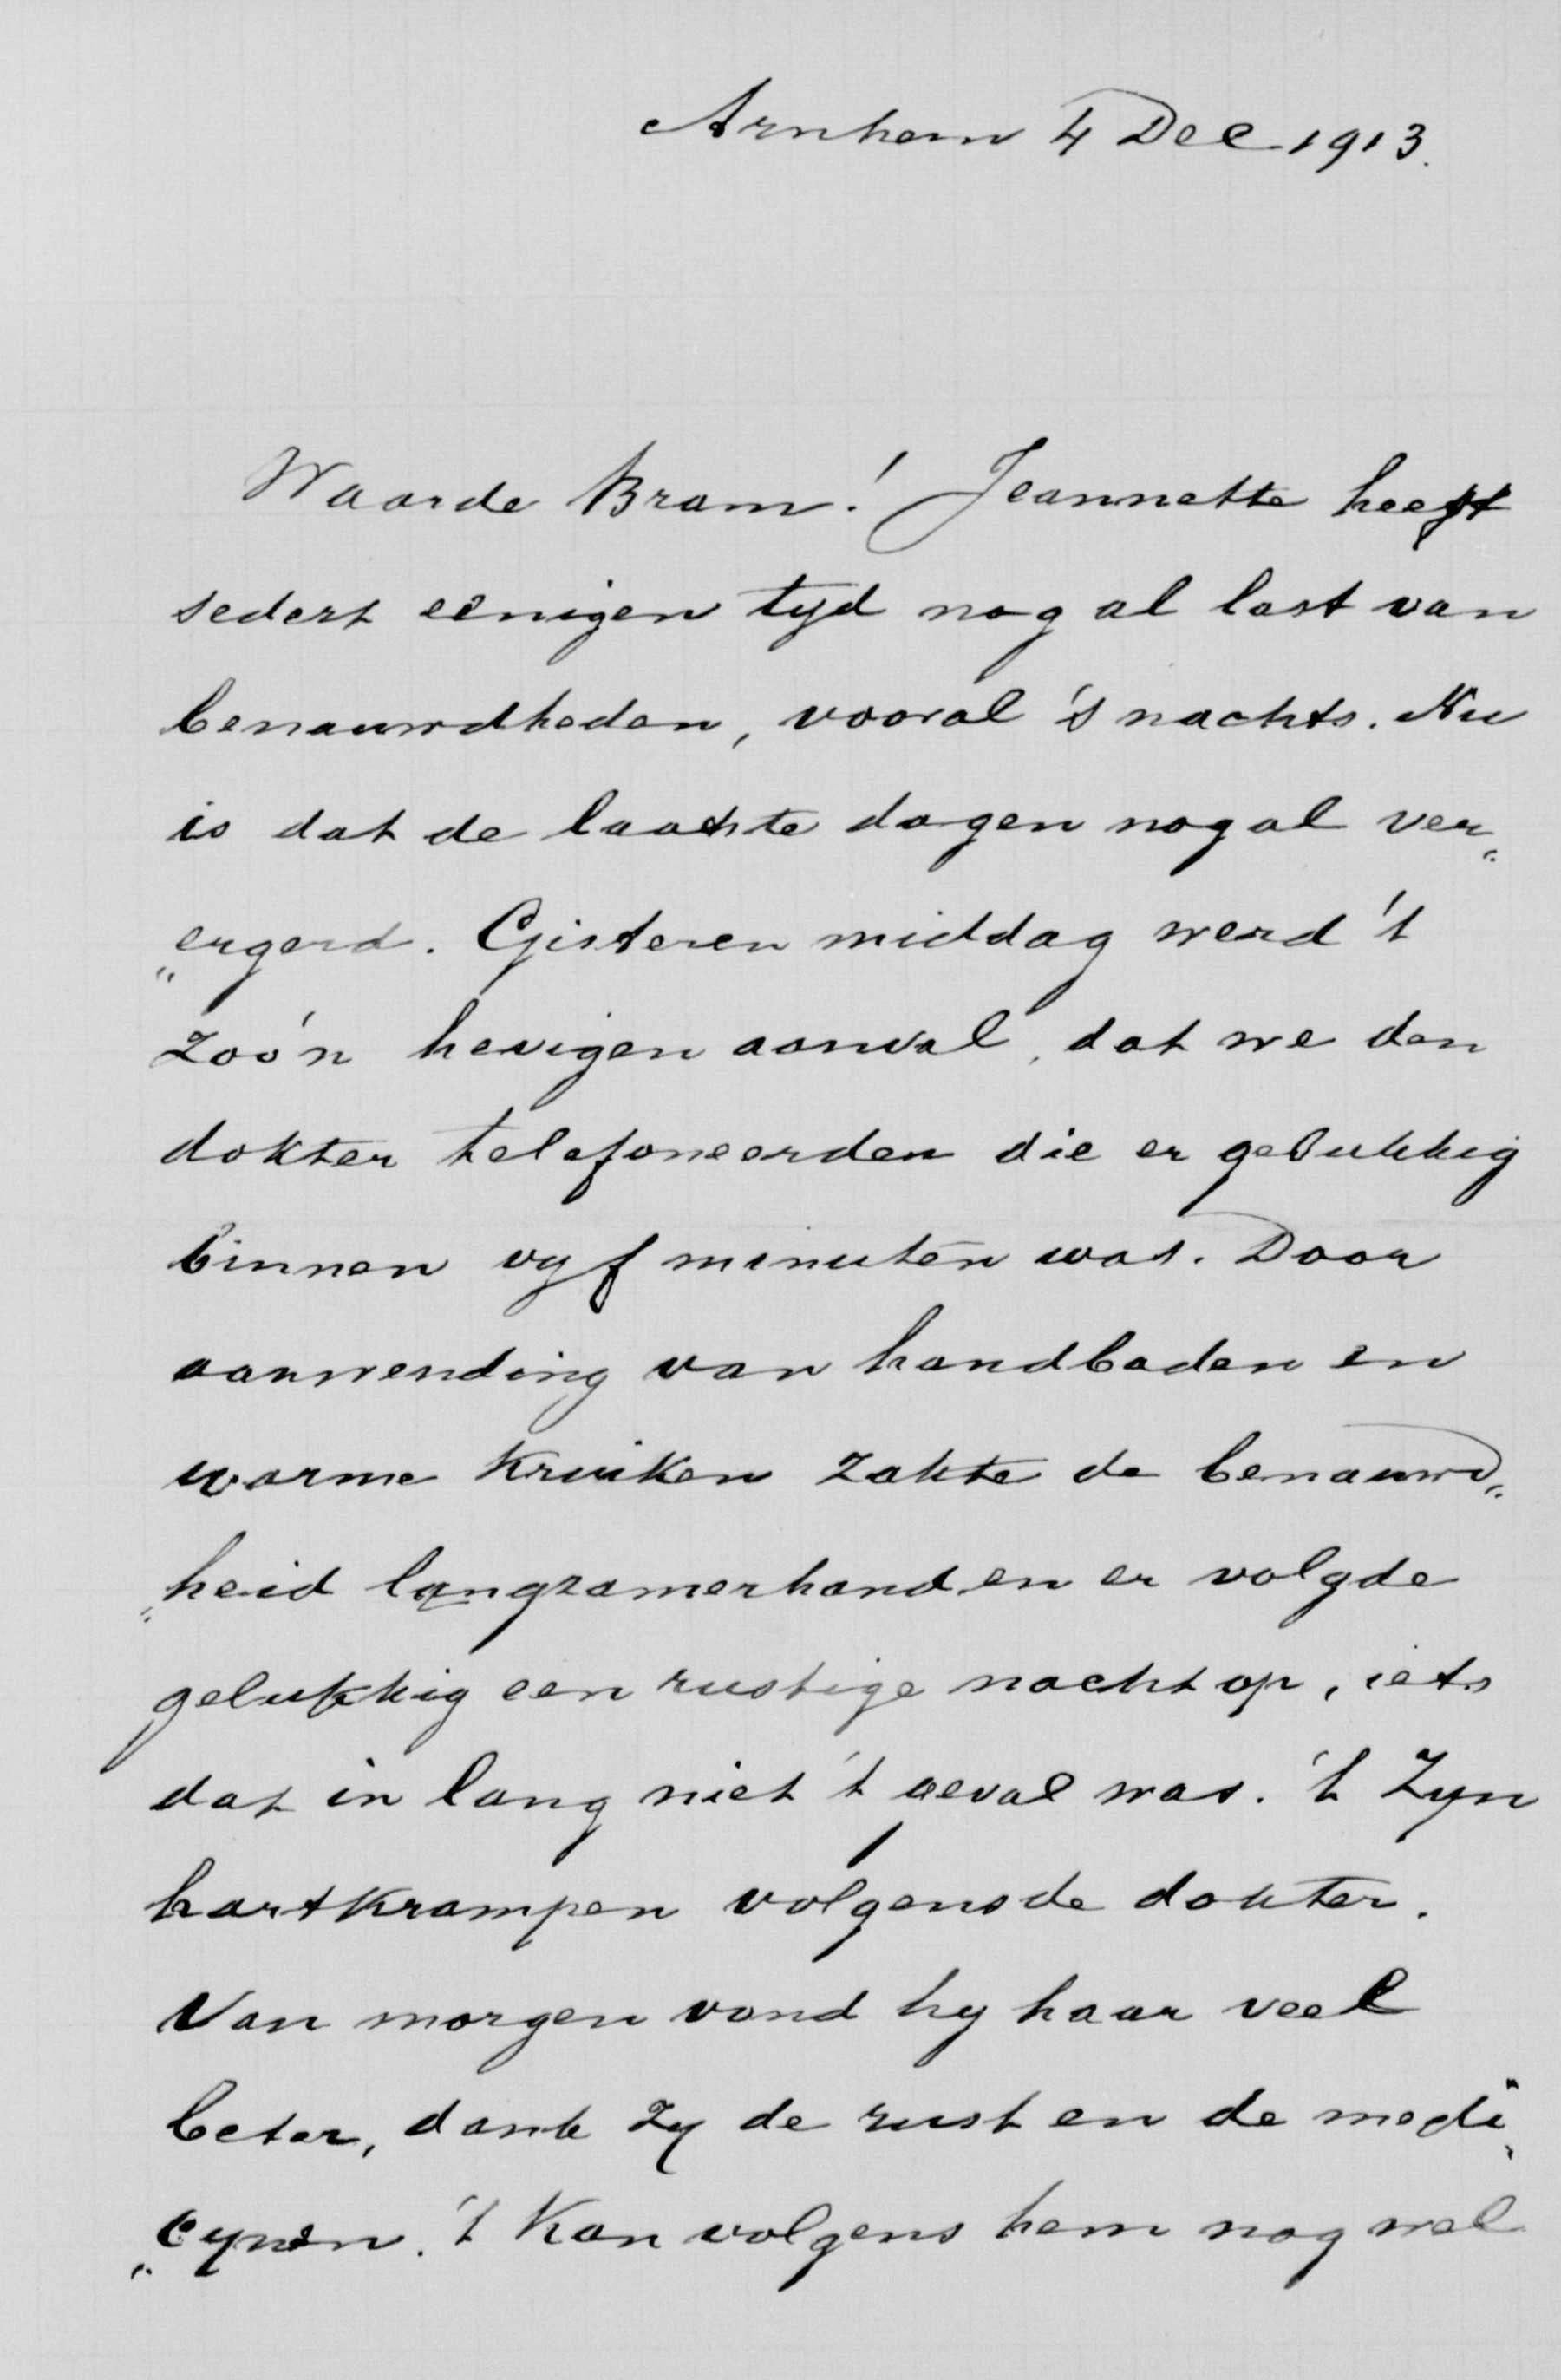 Arnhem 4 Dec 1913.
Waarde Bram! Jeannette heeft
sedert eenigen tyd nog al last van
benauwdheden, vooral 's nachts. Nu
is dat de laatste dagen nog al ver„
„ergerd. Gisteren middag werd 't
zoo'n hevigen aanval, dat we den
dokter telefoneerden die er gelukkig
binnen vyf minuten was. Door
aanwending van handbaden en
warme kruiken zakte de benauwd„
„heid langzamerhand en er volgde
gelukkig een rustige nacht op, iets
dat in lang niet 't geval was. 't Zyn
hartkrampen volgens de dokter.
Van morgen vond hy haar veel
beter, dank zy de rust en de medi„
„cynen. 't Kan volgens hem nog wel